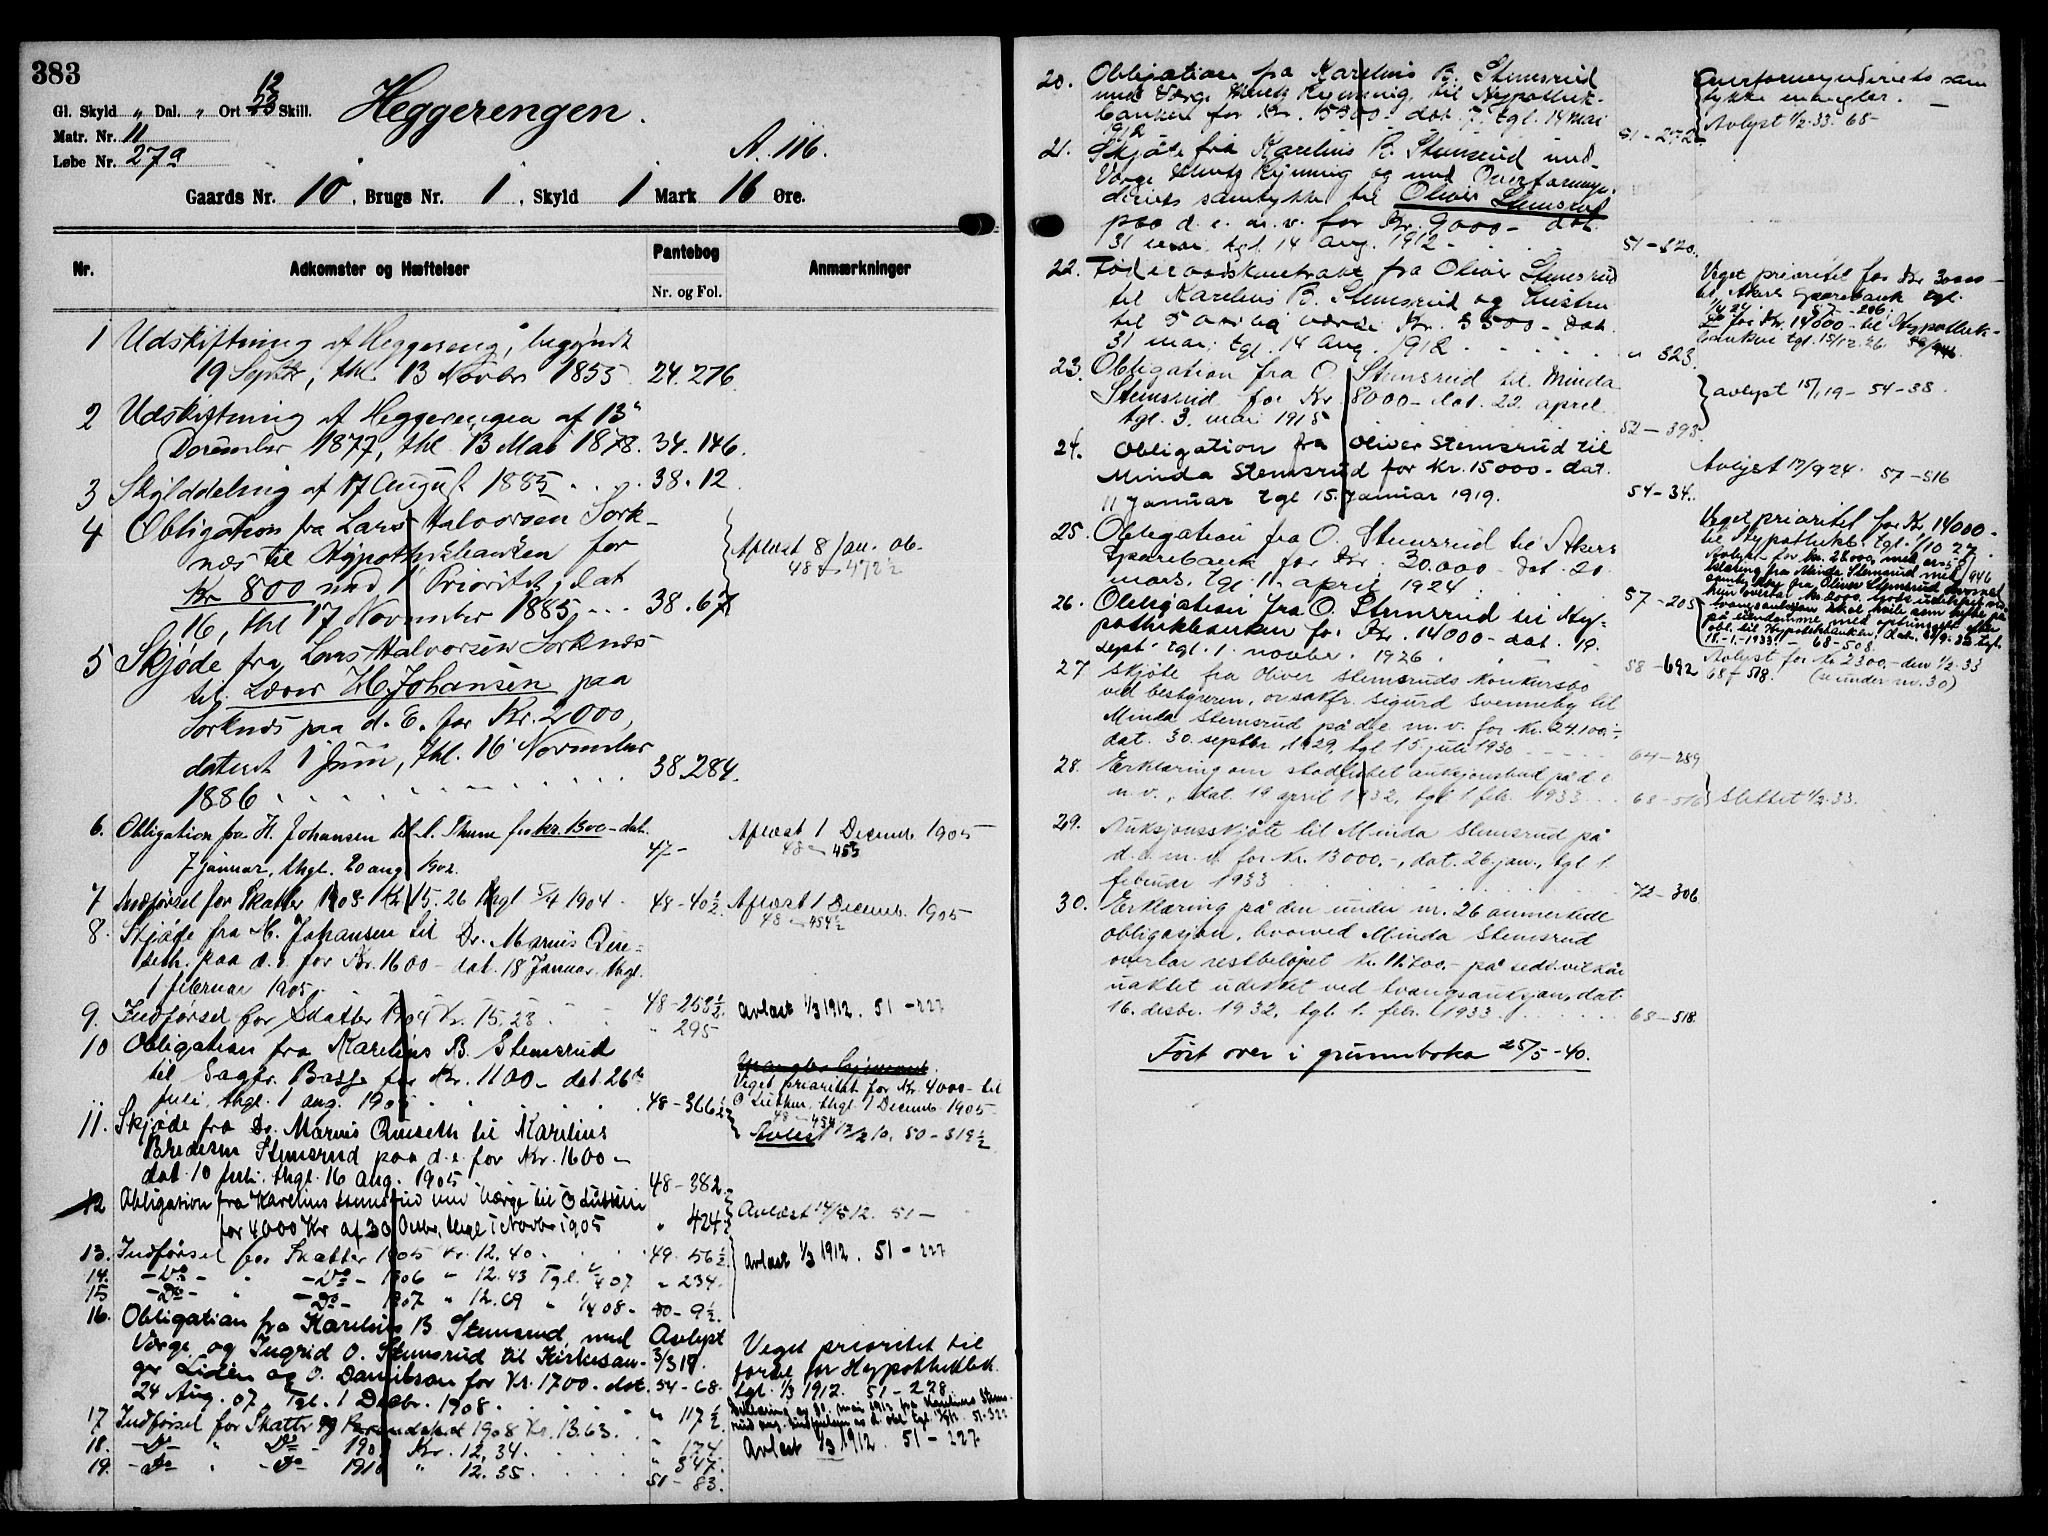 383
Gl. Skyld „ Dal. „ Ort 12 23 Skill.
Matr. Nr. 11
Løbe Nr. 27a
Heggerengen.
A. 116.
Gaards Nr. 10, Brugs Nr. 1, Skyld 1 Mark 16 Øre.
Nr. Adkomster og Hæftelser Pantebog Nr. og Fol. Anmærkninger
1 Udskiftning af Heggereng, begyndt
19 Septbr, thl. 13 Novbr 1855 24.276.
2 Udskiftning af Heggerengen af 13'
December 1877, thl. 13 Mai 1878. 34.146.
3 Skylddeling af 17 August 1885 . . . 38.12.
4 Obligation fra Lars Halvorsen Sork-
næs til Hypothekbanken for
Kr 800 med 1' Prioritet, dat
16, thl 17 November 1885 . . . 38.67
Aflæst 8/ 06.
48 - 472½
5 Skjøde fra Lars Halvorsen Sorknæs
til H. Johansen paa
Sorknæs paa d. E. for Kr. 2000,
dateret 1 Juni, thl. 16' November
1886 . . . 38.284.
6. Obligation fra H. Johansen til C. Thune for kr. 1300 - dat.
7 januar, thgl. 20 aug. 1902. 47 -
Aflæst 1 Decemb. 1905
48 - 453
7 Indførsel for Skatter 1903 Kr 15.26 thgl 5/4 1904. 48 - 40½
Aflæst 1 Decemb. 1905
48 - 454½
8. Skjøde fra H. Johansen til Dr. Marius Qvi-
seth. paa d. e. for Kr. 1600 - dat. 18 Januar, thgl.
1 februar 1905. 48 - 258½
9. Indførsel for Skatter 1904 Kr. 15.23 . . „ 295
Avlæst 1/3 1912. 51 - 227
10 Obligation fra Karelius B. Stemsrud
til Sagfr. Basse for Kr. 1100 - dat. 26de
juli, thgl. 1 aug. 1905 . . . 48 - 366½
Veget prioritet for Kr. 4000 - til
O Lutken, thgl. 1 Decemb. 1905.
48 - 454
Avlest 12/2 10. 50 - 319½
11. Skjøde fra Dr. Marius Qviseth til Karelius
Bredesen Stemsrud paa d. e. for Kr. 1600 -
dat. 10 juli, thgl. 16 aug. 1905 48 - 382
12 Obligation fra Karelius Stemsrud med Værge til O Lutken
for 4000 Kr af 30 Octbr, thgl 1 Novbr 1905 „ 424½
Avlæst 14/5 12. 51 -
13. Indførsel for Skatter 1905 Kr. 12.40 . . . 49. 56½
14. - Do - „ - Do - 1906 „ 12.43 Tgl. /4 07 „ 234.
15 - Do - „ - Do - 1907 „ 12.69 „ 1/4 08 - 50 - 9½
Avlæst 1/3 1912. 51 - 227
16. Obligation fra Karelius B Stemsrud, med
Værge og Ingrid O. Stemsrud til Kirkesan-
ger Lidén og O. Danielsen for Kr. 1700 - dat.
24 Aug. 07, Tgl. 1 Decbr. 1908.
Avlyst
3/3 19.
54 - 68.
Veget prioritet til
fordel for Hypothekbk.
tgl. 1/3 1912. 51 - 228
17 Indførsel for Skatter og 1908 Kr. 13.63. „ 117½
18. - Do - „ Do - 1909 Kr. 12.34. „ 174
19. - Do - „ - Do - 1910 „ 12.35. „ 347.
51 - 83.
Avlæst 1/3 1912. 51 - 227
20. Obligation fra Karelius B. Stemsrud
med Værge til Hypothek-
banken for Kr. dat. 7. tgl. 14 mai
1912 51 - 272
Overformynderiets sam
tykke mangler. -
Avlyst 1/2.33. 68 -
21. Skjøte fra Karelius B. Stemsrud med
Værge og med Overformyn-
deriets samtykke til Oliver Stemsrud
paa d. e. m. v. for Kr. 9000 - dat.
31 mai, tgl. 14 aug. 1912 - . . 51 - 520.
22. Føderaadskontrakt fra Oliver Stemsrud
til Karelius B. Stemsrud og Hustru
til 5 aarlig værdi Kr. 3500 - dat.
31 mai, tgl. 14 Aug. 1912 . . . „ 523.
Veget prioritet for Kr 30000 -
til Akers sparebank tgl.
1/4 24 57 - 206.
Do for Kr. 14000 - til Hypothek-
banken tgl. 15/12.26
23. Obligation fra O. Stemsrud til Minda
Stemsrud for Kr 8000 - dat. 22. april
tgl. 3. mai 1915 52 - 393
avlyst 15/1 19 - 54 - 38.
24. Obligation fra Oliver Stemsrud til
Minda Stemsrud for Kr. 15000 - dat.
11 Januar tgl 15. Januar 1919. 54 - 34.
Avlyst 17/9 24. 57 - 516
25. Obligation fra O. Stemsrud til Akers
Sparebank for Kr. 30.000 - dat. 20
mars, tgl. 11. april 1924 . . . 57 - 205
Veget prioritet for Kr. 14000 -
til Hypothekb. tgl. 1/10 27.
26. Obligation fra O. Stemsrud til Hy-
pothekbanken for Kr. 14000 - dat. 19.
sept. tgl. 1. novbr. 1926 . . . 58 - 692
Avlyst for Kr 2300,- den 1/2.33
68 - 518. (se under nr. 30)
27 Skjøte fra Oliver Stemsruds konkursbo
ved bestyreren, o.r.sakfr. Sigurd Svenneby til
Minda Stemsrud på d.e. m. v. for Kr. 24.100,-,
dat. 30. septbr. 1929, tgl 15 juli 1930 . . 64 - 289
28. Erklæring om stadfestet auksjonsbud på d e
m. v., dat. 19 april 1932, tgl 1 feb. 1933 . . . 68 - 516
Slettet 1/2.33.
29. Auksjonsskjøte til Minda Stemsrud på
d. e. m. v. for Kr. 13000,-, dat. 26 jan., tgl 1.
februar 1933 . . . 72 - 306
30. Erklæring på den under nr. 26 anmerkede
obligasjon, hvorved Minda Stemsrud
overtar restbeløpet Kr. 11.700,- på vilkår
uaktet udekket ved tvangsauksjon, dat.
16. desbr. 1932, tgl. 1. feb. 1933 . . . 68 - 518
Ført over i grunnboka 25/5 - 40.